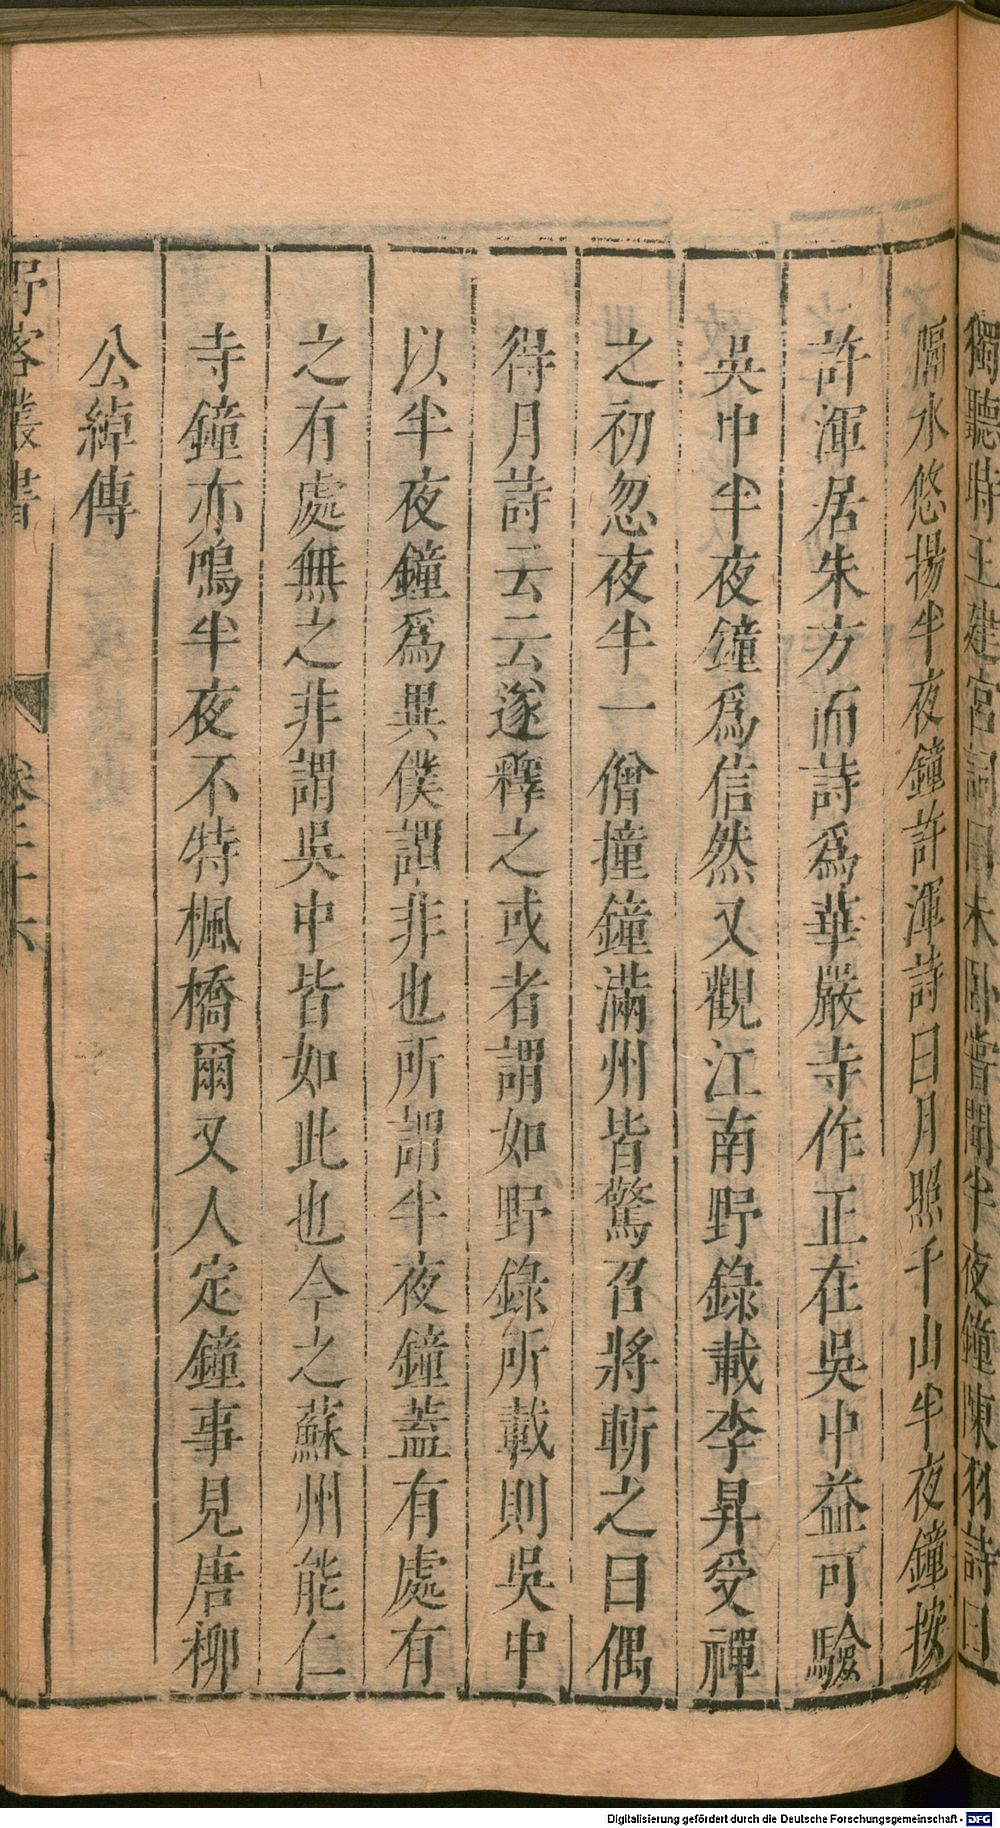 獨聽時王建宮詞曰未臥嘗聞半夜鐘陳羽詩曰
隔水悠揚半夜鐘許渾詩曰月照千山半夜鐘按
許渾居朱方而詩爲華嚴寺作正在吳中益可驗
吳中半夜鐘爲信然又觀江南野錄載李昇受禪
之初忽夜半一僧撞鐘滿州皆驚召將斬之曰偶
得月詩云云遂釋之或者謂如野錄所載則吳中
以半夜鐘爲異僕謂非也所謂半夜鐘蓋有處有
之有處無之非謂吳中皆如此也今之蘇州能仁
寺鐘亦鳴半夜不特楓橋爾又人定鐘事見唐柳
公綽傳
野客叢書 卷二十六 九
Digitalisierung gefördert durch die Deutsche Forschungsgemeinschaft - DFG